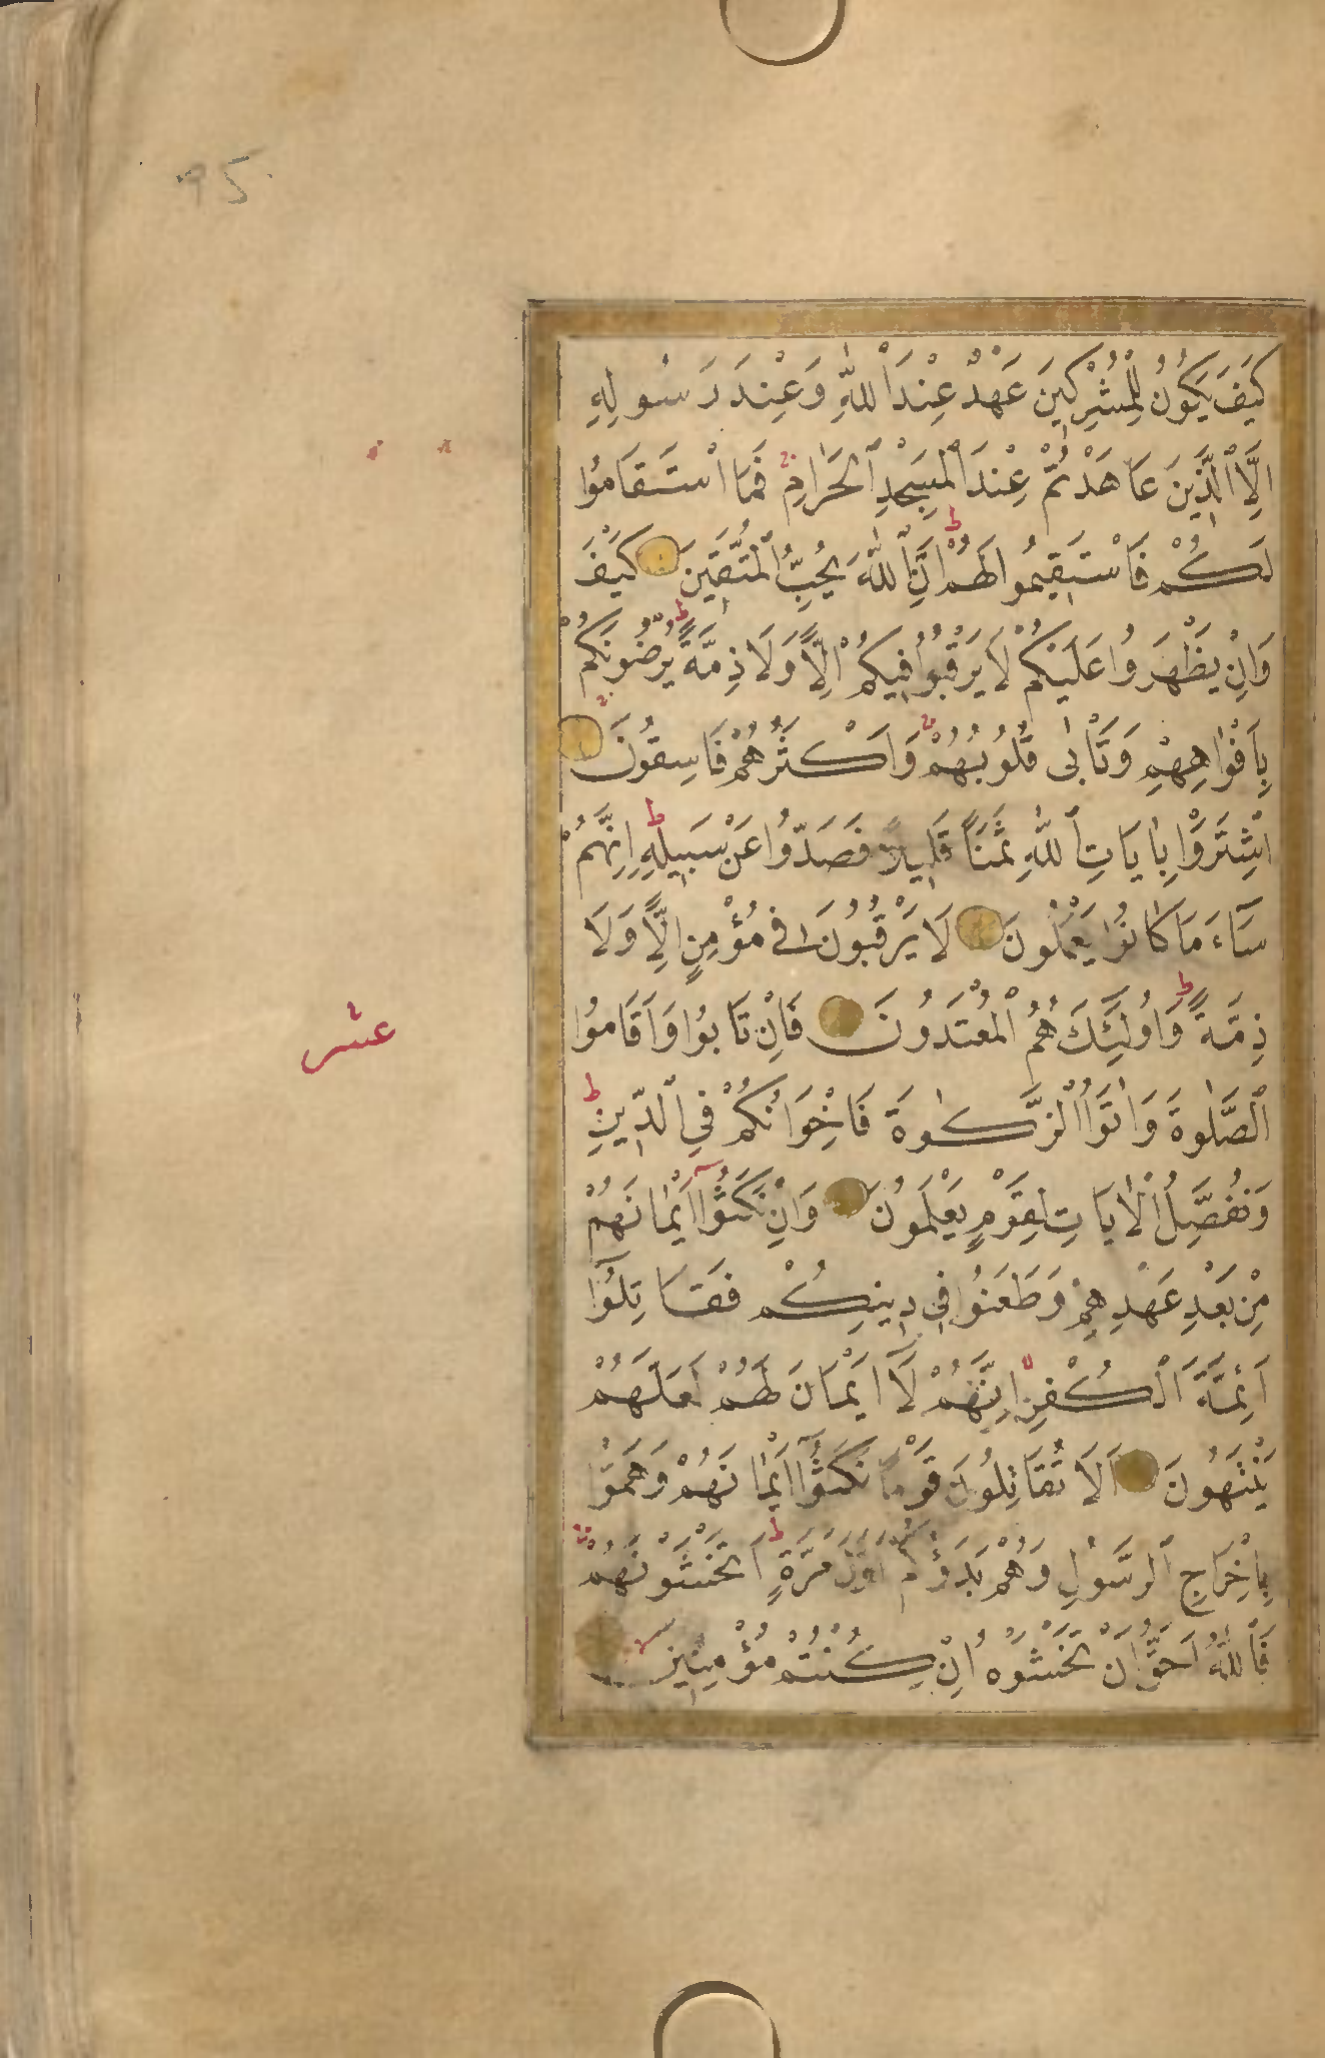 95
كَيْفَ يَكُونُ لِلْمُشْرِكِينَ عَهْدٌ عِنْدَ اللّٰهِ وَعِنْدَ رَسُولِهِ
اِلَّا الَّذِينَ عَاهَدْتُمْ عِنْدَ الْمَسْجِدِ الْحَرَامِ فَمَا اسْتَقَامُوا
لَكُمْ فَاسْتَقِيمُوا لَهُمْ ط اِنَّ اللّٰهَ يُحِبُّ الْمُتَّقِينَ كَيْفَ
وَاِنْ يَظْهَرُوا عَلَيْكُمْ لَا يَرْقُبُوا فِيكُمْ اِلًّا وَلَا ذِمَّةً ط يُرْضُونَكُمْ
بِاَفْوَاهِهِمْ وَتَأْبٰى قُلُوبُهُمْ وَاَكْثَرُهُمْ فَاسِقُونَ
اِشْتَرَوْا بِاٰيَاتِ اللّٰهِ ثَمَنًا قَلِيلًا فَصَدُّوا عَنْ سَبِيلِهِ ط اِنَّهُمْ
سَآءَ مَا كَانُوا يَعْمَلُونَ لَا يَرْقُبُونَ فِى مُؤْمِنٍ اِلًّا وَلَا
ذِمَّةً ط وَاُولٰٓئِكَ هُمُ الْمُعْتَدُونَ فَاِنْ تَابُوا وَاَقَامُوا
عشر
الصَّلٰوةَ وَاٰتَوُا الزَّكٰوةَ فَاِخْوَانُكُمْ فِي الدِّينِ ط
وَنُفَصِّلُ الْاٰيَاتِ لِقَوْمٍ يَعْلَمُونَ وَاِنْ نَكَثُوٓا اَيْمَانَهُمْ
مِنْ بَعْدِ عَهْدِهِمْ وَطَعَنُوا فِي دِينِكُمْ فَقَاتِلُوٓا
اَئِمَّةَ الْكُفْرِ اِنَّهُمْ لَآ اَيْمَانَ لَهُمْ لَعَلَّهُمْ
يَنْتَهُونَ اَلَا تُقَاتِلُونَ قَوْمًا نَكَثُوٓا اَيْمَانَهُمْ وَهَمُّوا
بِاِخْرَاجِ الرَّسُولِ وَهُمْ بَدَؤُكُمْ اَوَّلَ مَرَّةٍ ط اَتَخْشَوْنَهُمْ
فَاللّٰهُ اَحَقُّ اَنْ تَخْشَوْهُ اِنْ كُنْتُمْ مُؤْمِنِينَ